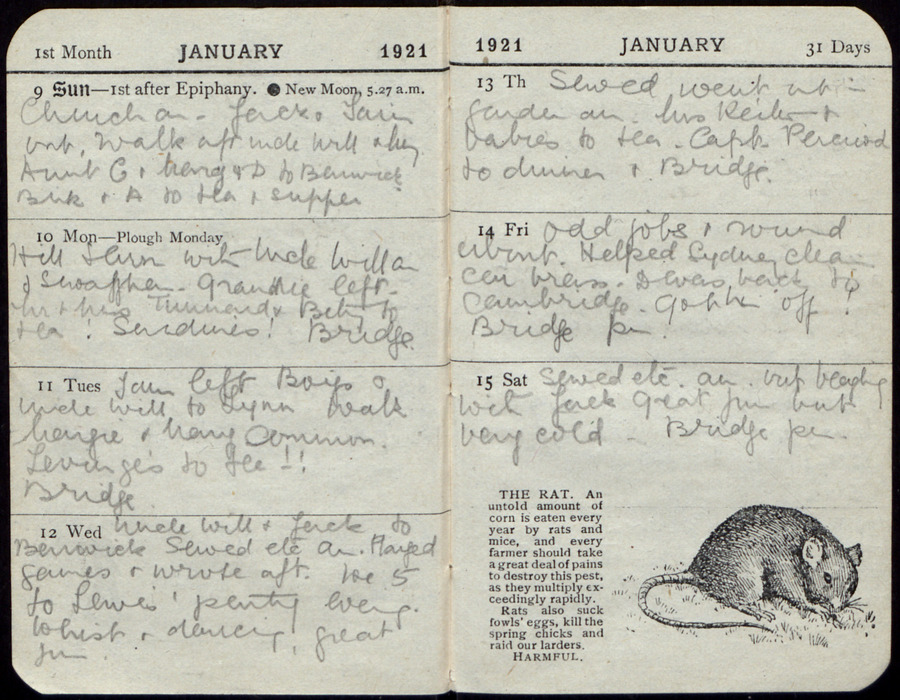 1st Month JANUARY 1921
9 Sun—1st after Epiphany. ● New Moon, 5.27 a.m.
Church am. Jack & Iain
out, walk aft Uncle Will &
Aunt G & & D to Benwick
& A to tea & supper
10 Mon—Plough Monday
with Uncle Will am
Grannie left.
Mr & Mrs & Betty to
tea! Sardines! Bridge.
11 Tues Iain left Boys &
Uncle Will to Lynn Walk
& Common.
to tea!!
Bridge
12 Wed Uncle Will & Jack to
Benwick Sewed etc am. Played
games & wrote aft. We 5
to Lewes' party eveng.
Whist & dancing, great
fun.
1921 JANUARY 31 Days
13 Th Sewed, went out in
garden am. Mrs &
babies to tea. Capt. Percival
to dinner & Bridge.
14 Fri Odd jobs & round
about. Helped Sydney clean
car brass. D was back to
Cambridge. off!
Bridge
15 Sat Sewed etc. am. out
with Jack great fun but
very cold – Bridge
THE RAT. An
untold amount of
corn is eaten every
year by rats and
mice, and every
farmer should take
a great deal of pains
to destroy this pest,
as they multiply ex-
ceedingly rapidly.
Rats also suck
fowls' eggs, kill the
spring chicks and
raid our larders.
HARMFUL.